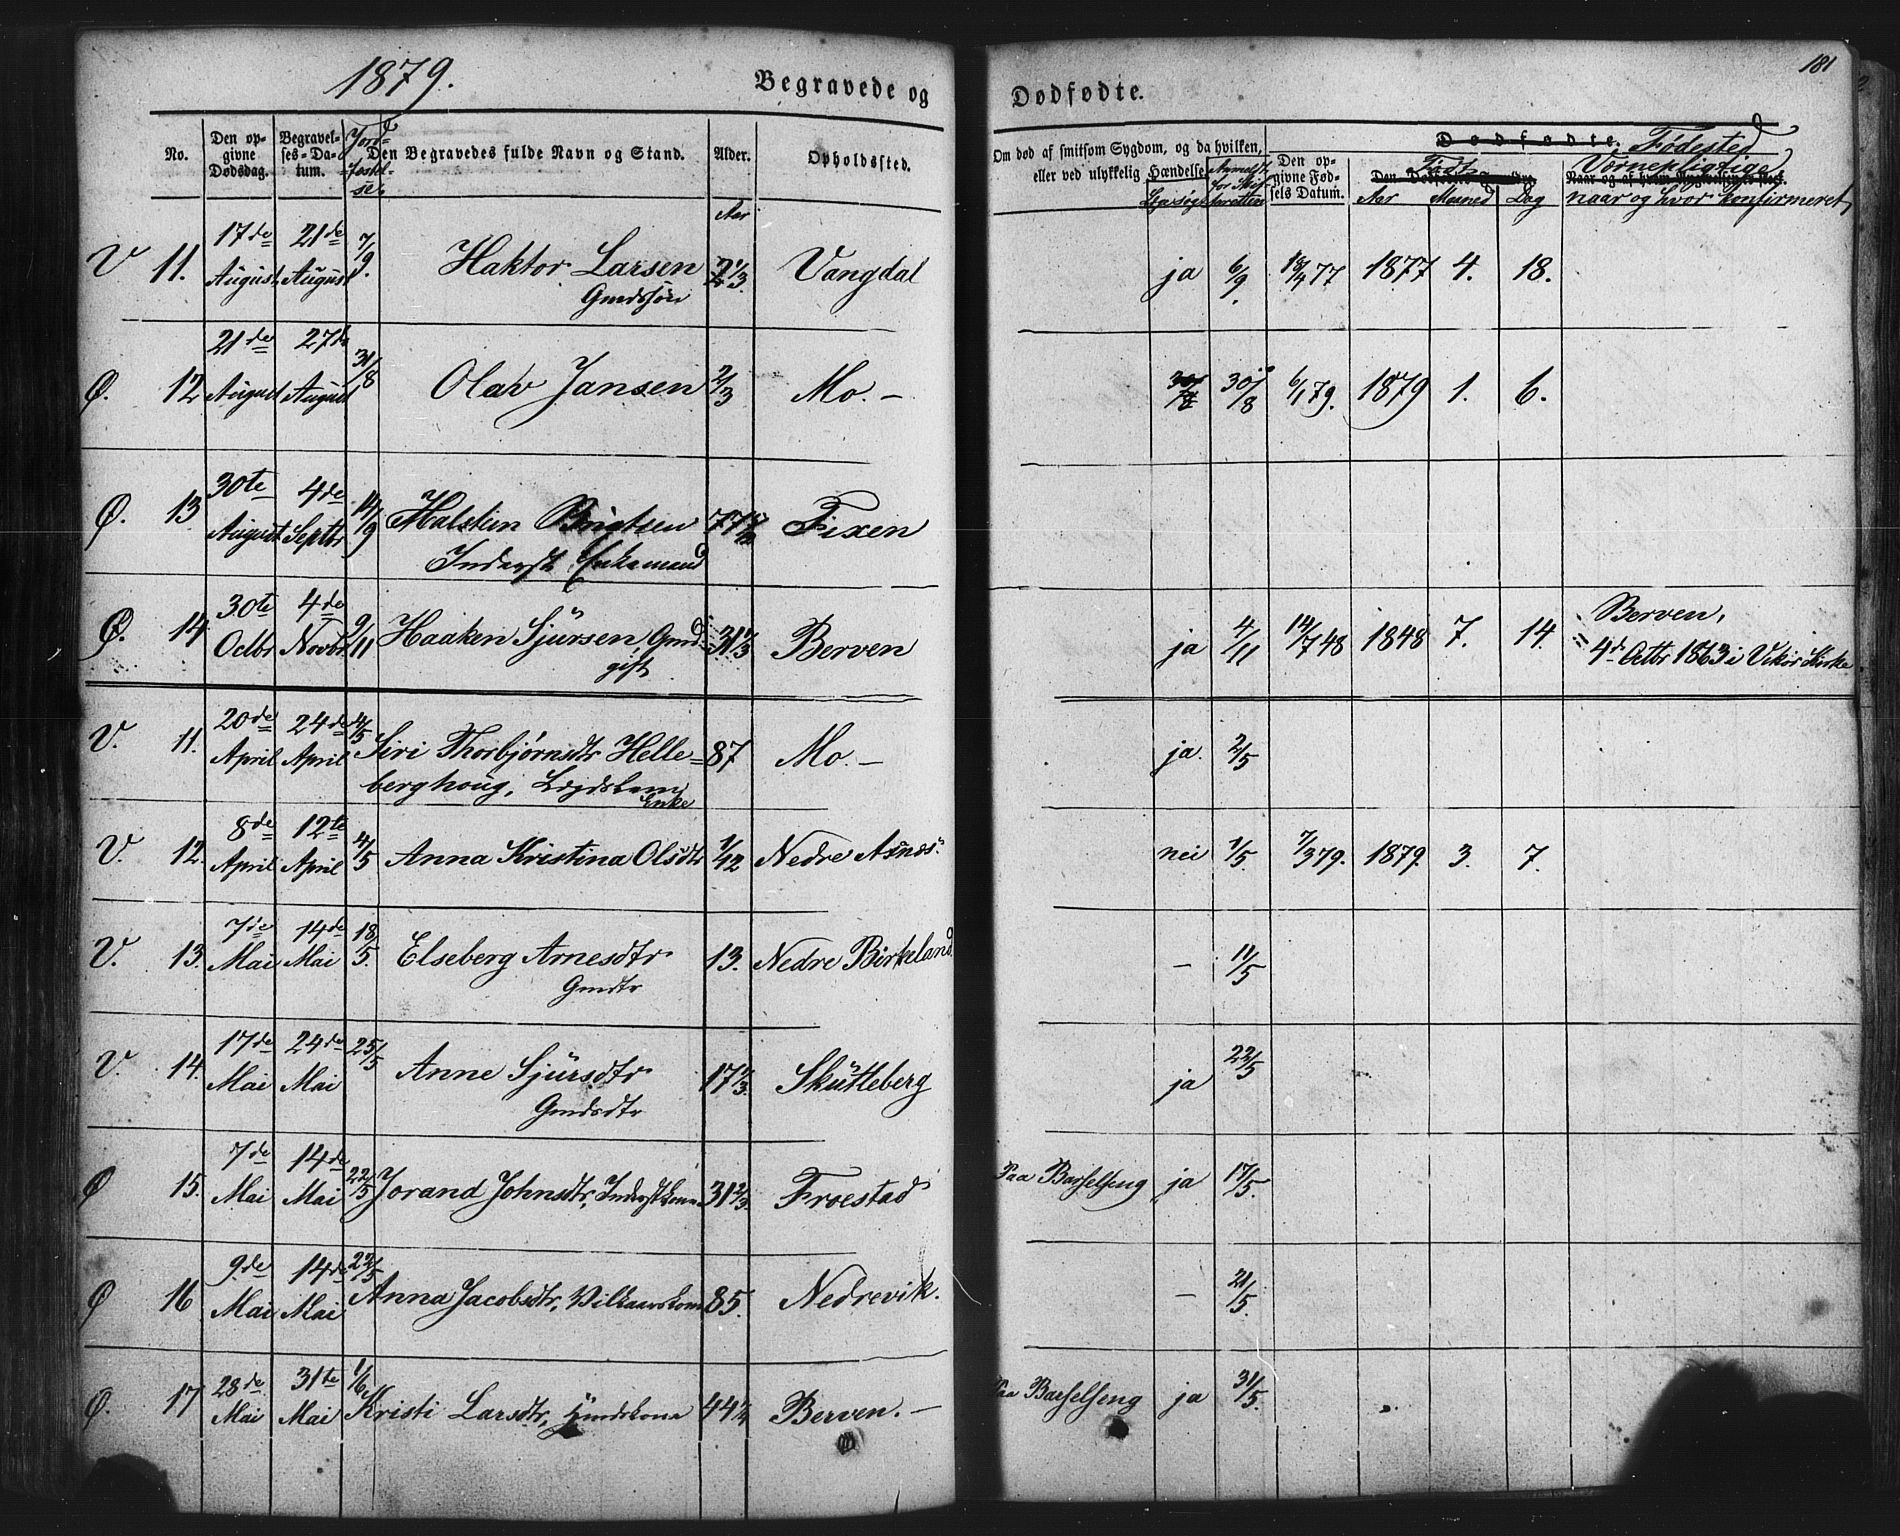 1879.
Begravede og
Dødfødte.
181
No.
Den opgivne Dødsdag.
Begravelses-Datum.
Jordfæstelse
Den Begravedes fulde Navn og Stand.
Alder.
Opholdssted.
Om død af smitsom Sygdom, og da hvilken,
eller ved ulykkelig Hændelse.
Anmeldt for Skifteretten
Den opgivne Fødsels Datum.
Dødfødte.
Fødested
Født
Aar Maaned Dag
Vornepligtige
naar og hvor konfirmeret
Aar
V 11. 17de August 21de August 7/9. Haktor Larsen 2 1/3. Vangdal ja 6/9. 18/4 77 1877 4. 18.
Gmdssøn
Ø. 12 21de August 27de August 31/8 Olav Jansen 2/3 Mo. — 30/8 30/8 6/1 79. 1879 1. 6.
Ø. 13 30te August 4de Septbr 14/9 Halstein 77 Fixen
Inderst Enkemand
Ø. 14 30te Octbr 4de Novbr 9/11 Haaken Sjürsen, Gmd 31 1/3 Berven ja 4/11 14/7 48 1848 7. 14. Berven,
gift
4de Octbr 1863 i Vikør Kirke
V. 11. 20de April 24de April 4/5 Siri Thorbjørnsdtr Helle= 87 Mo. — ja. 2/5
berghoug, Lægdslem
Enke
V. 12. 8de April 12te April 4/5 Anna Kristina Olsdtr 1/12 Nedre Asnæs. nei 1/5. 7/3 79. 1879. 3. 7.
V. 13. 7de Mai 14de Mai 18/5. Elseberg Arnesdtr 13. Nedre Birkeland — 11/5
Gmdtr
V. 14. 17de Mai 24de Mai 25/5 Anne Sjürsdtr 17 1/3. Skutleberg ja 22/5
Gmdsdtr
Ø 15. 7de Mai 14de Mai 22/5 Jorand Johnsdtr, Inderstkone 31 2/3. Froestad Paa Barselseng ja 17/5.
Ø 16 9de Mai 14de Mai 22/5 Anna Jacobsdtr, Vilkaarskone 85. Nedrevik. — 21/5.
Ø. 17 28de Mai 31te Mai 1/6 Kristi Larsdtr, Gmdskone 44 Berven. — Paa Barselseng ja 31/5.